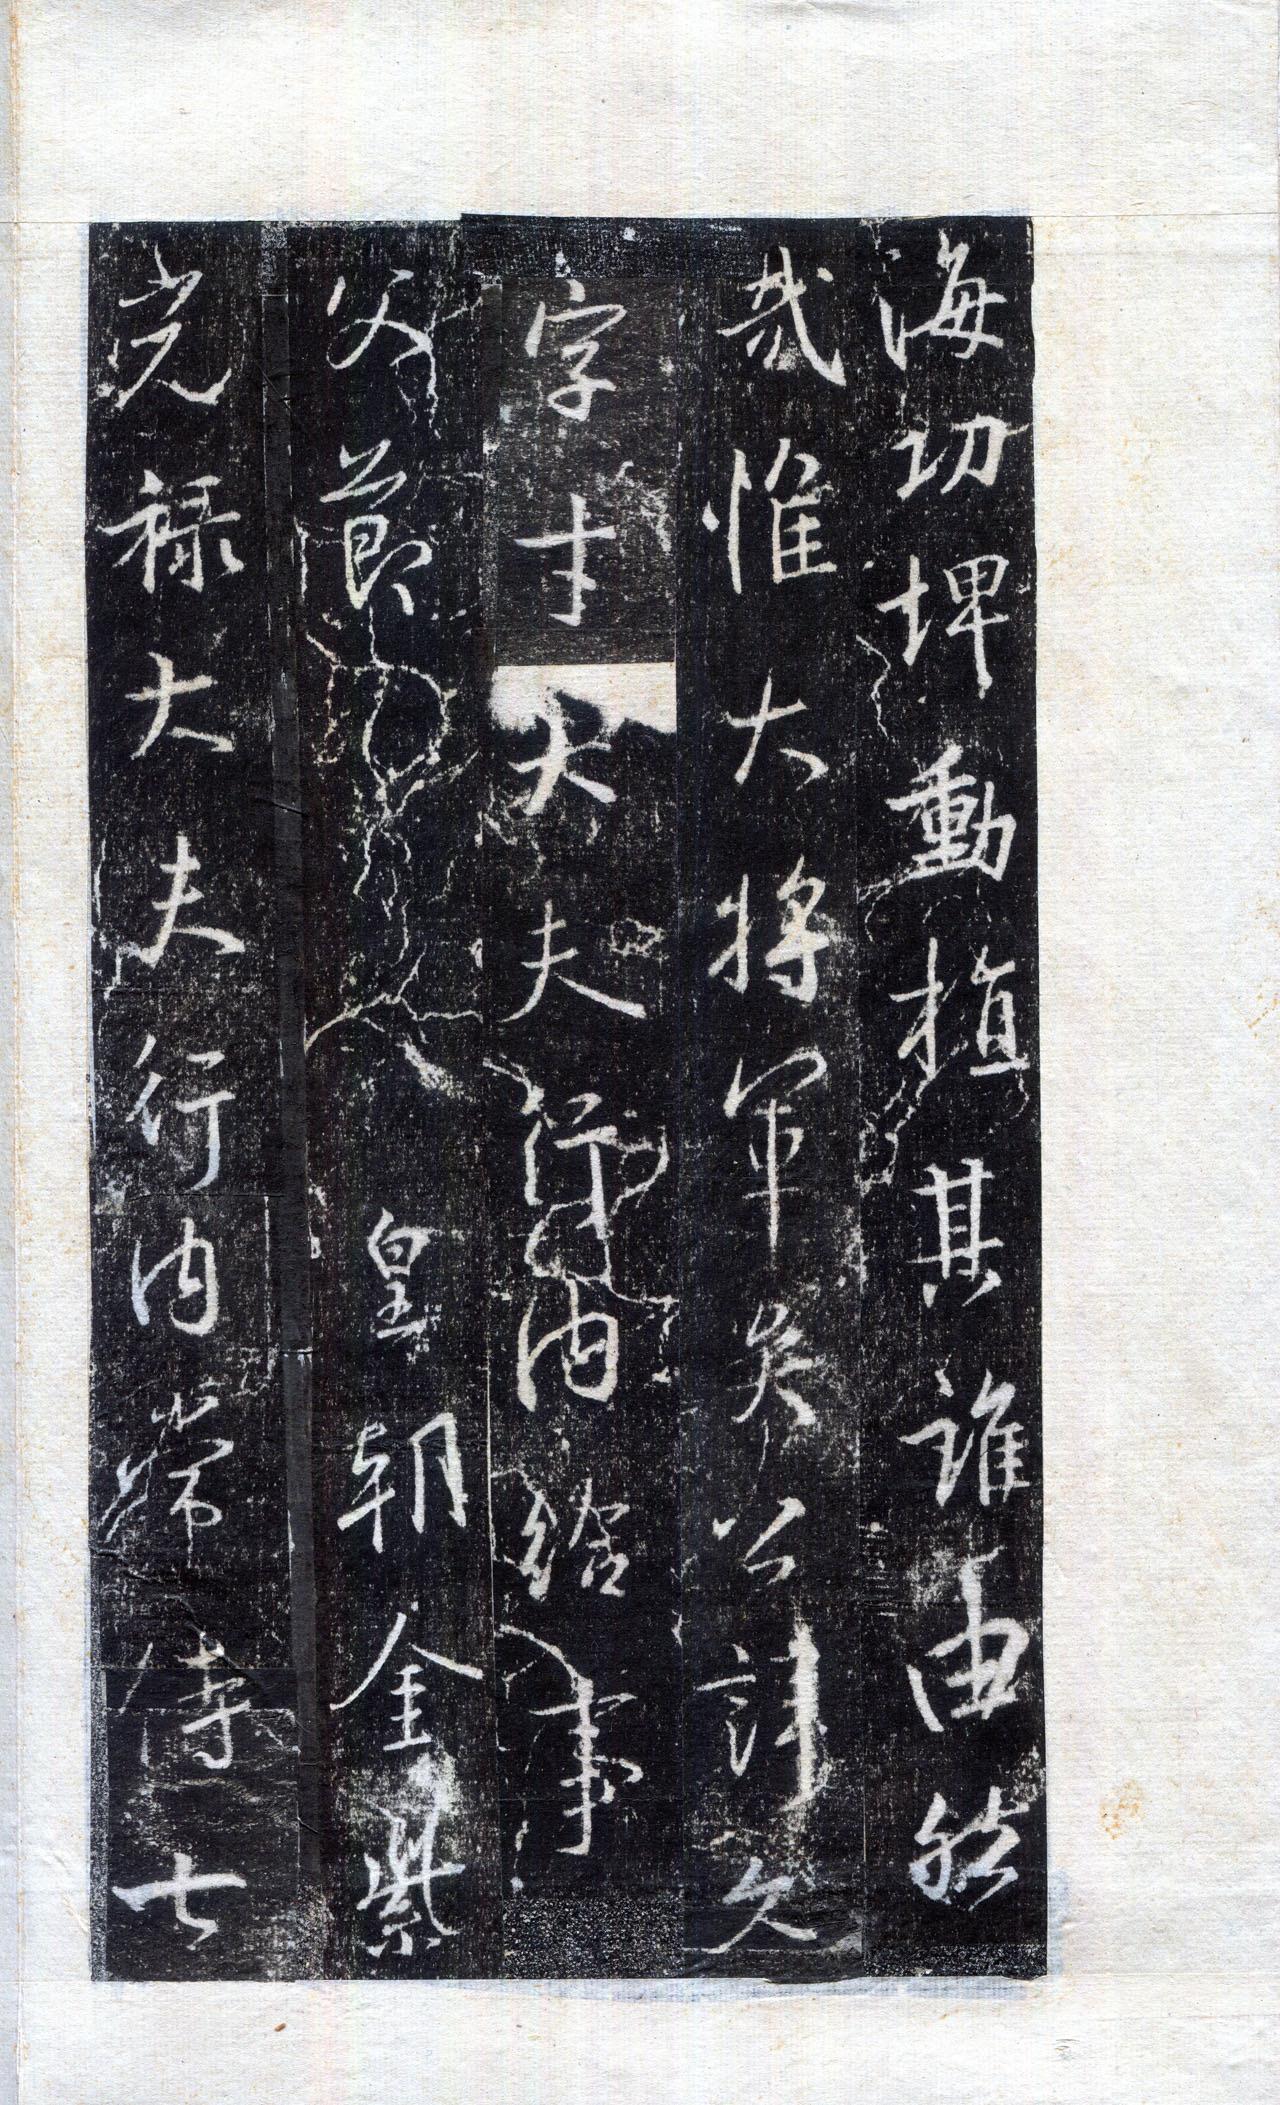 海切埤動植其誰由然
哉惟大將軍矣公諱文
字才大夫行內給事
父節皇朝金紫
光祿大夫行內常侍七